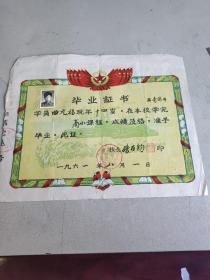 毕业证书
学员曲凡格现年十四岁，在本校学完
高小课程，成绩及格，准予
毕业，此证。
校长
印
一九六一年八月一日